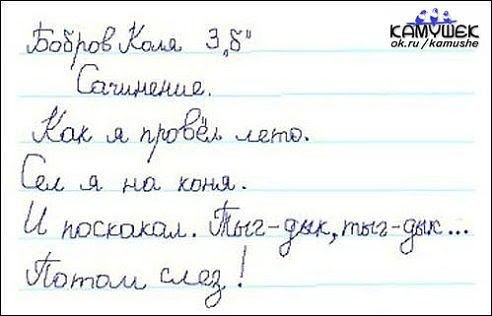 КАМУШЕК
ok.ru/kamushe
Бобров Коля 3„б“
Сачинение.
Как я провёл лето.
Сел я на коня.
И поскакал. Тыг-дык, тыг-дык...
Потом слез!